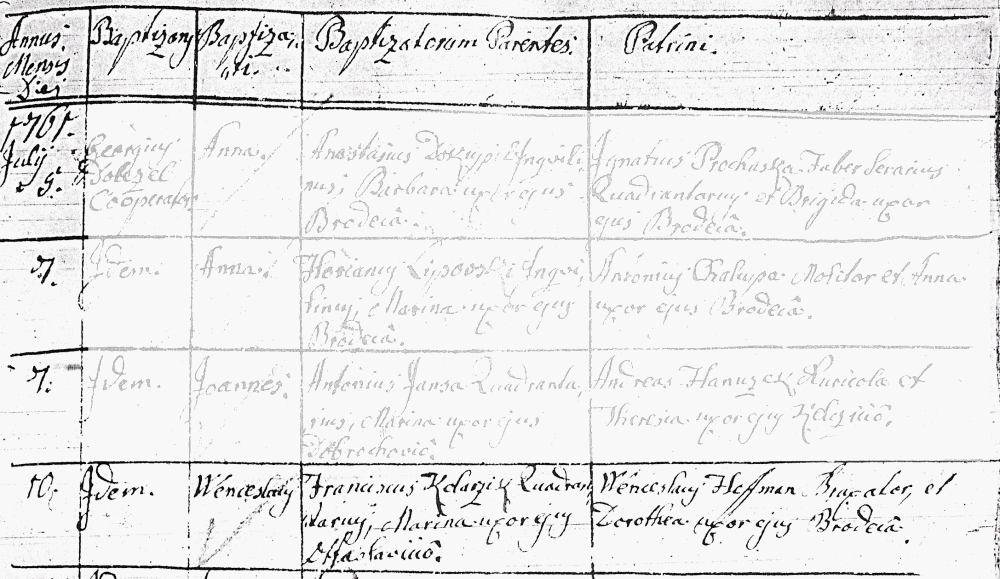 Annus. Mensis Dies
Baptizans
Baptizati.
Baptizatorum Parentes.
Patrini.
1761.
July 5.
Georgius
Cooperator
Anna.
Anastasius Inquili
nus, Barbara uxor ejus
Brodecii.
Ignatius Prochaska Faber Serarius
Quadrantarius et Brigida uxor
ejus Brodecii.
7.
Idem.
Anna.
Florianus Lipovski Inqui
linus, Marina uxor ejus
Brodecii.
Antonius Chalupa Molitor et Anna
uxor ejus Brodecii.
7.
Idem.
Joannes.
Antonius Jansa Quadranta
rius, Marina uxor ejus
Andreas Hanuzek Auricola et
Theresia uxor ejus
10.
Idem.
Wenceslaus
Franciscus Quadran
tarius, Marina uxor ejus
Wenceslaus Hoffman Braxator, et
Dorothea uxor ejus Brodecii.